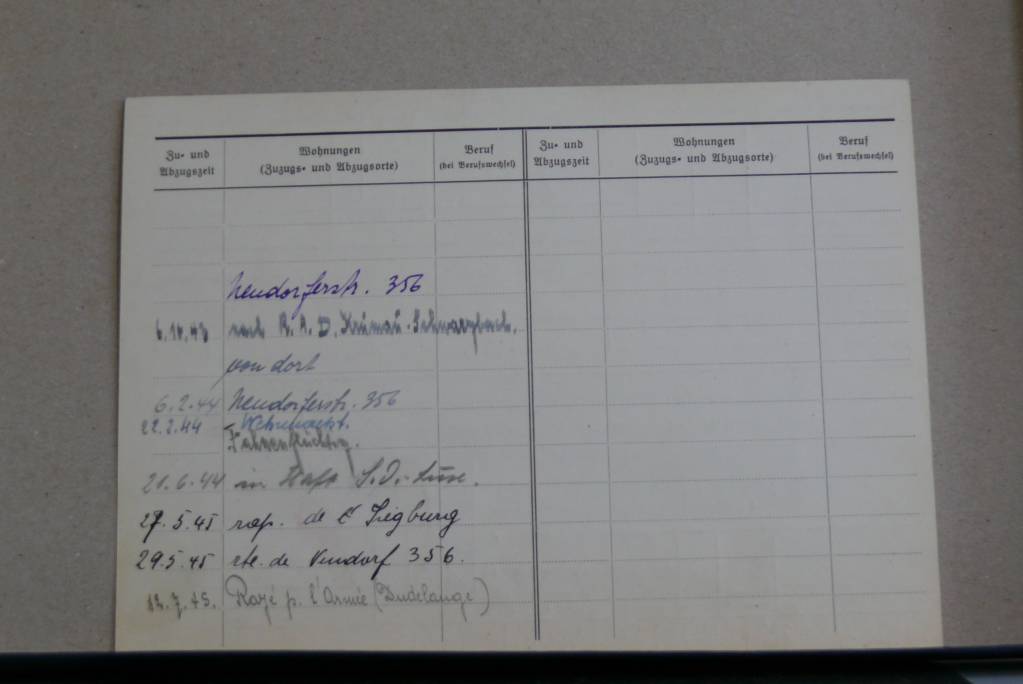 Zu- und Abzugszeit
Wohnungen
(Zuzugs- und Abzugsorte)
Beruf
(bei Berufswechsel)
Zu- und Abzugszeit
Wohnungen
(Zuzugs- und Abzugsorte)
Beruf
(bei Berufswechsel)
Neudorferstr. 356
6.10.43 nach R.A.D. Krumau-Schwarzbach.
von dort
6.2.44 Neudorferstr. 356
22.2.44 Wehrmacht.
Fahnenflüchtig.
21.6.44 in Haft S.D.-Luxe.
27.5.45 rap. de Siegburg
29.5.45 rte. de Neudorf 356.
12.7.45. Rayé p. l'Armée (Dudelange)